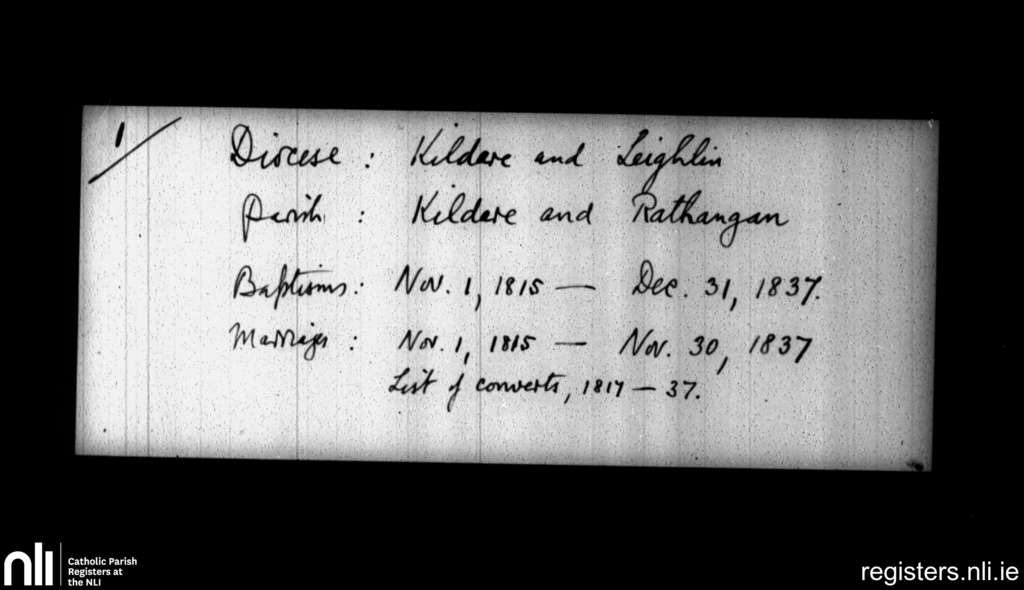 1/
Diocese : Kildare and Leighlin
Parish : Kildare and Rathangan
Baptisms : Nov. 1, 1815 — Dec. 31, 1837.
Marriages : Nov. 1, 1815 — Nov. 30, 1837
List of converts, 1817 — 37.
nli
Catholic Parish
Registers at
the NLI
registers.nli.ie